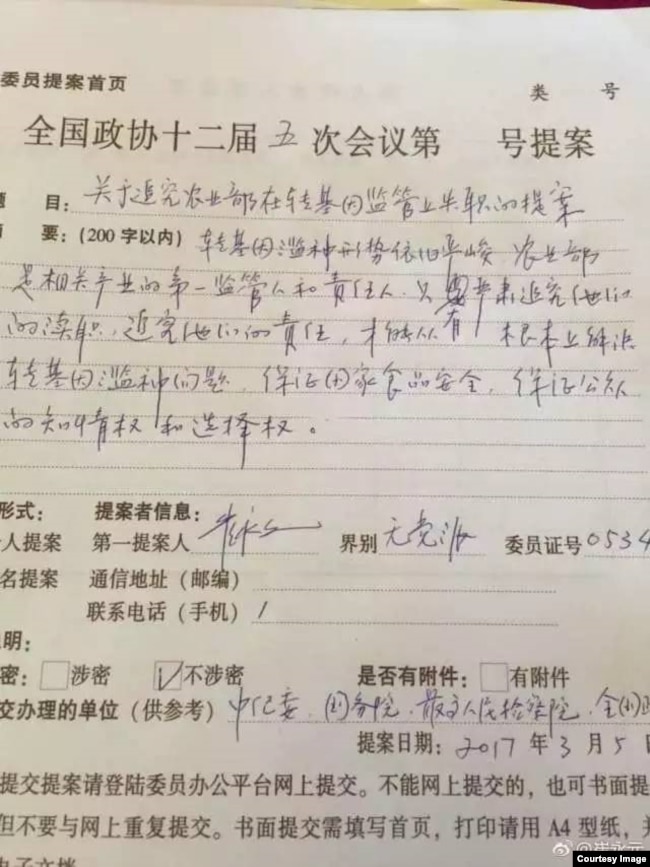 委员提案首页
类 号
全国政协十二届五次会议第 号提案
题 目：关于追究农业部在转基因监管上失职的提案
要：(200字以内) 转基因滥种形势依旧严峻 农业部
是相关产业的第一监管人和责任人.只要严肃追究他们
的渎职、追究他们的责任，才能从有根本上解决
转基因滥种问题，保证国家食品安全，保证公众
的知情权和选择权。
形式： 提案者信息：
人提案 第一提案人 崔永元 界别 无党派 委员证号 0534
名提案 通信地址（邮编）
联系电话（手机） 1
明：
密： 涉密 √不涉密 是否有附件： 有附件
交办理的单位（供参考）中纪委、国务院、最高人民检察院、全国
提案日期：2017年3月5日
提交提案请登陆委员办公平台网上提交。不能网上提交的，也可书面提
但不要与网上重复提交。书面提交需填写首页，打印请用 A4 型纸，并
电子文档
@崔永元
Courtesy Image